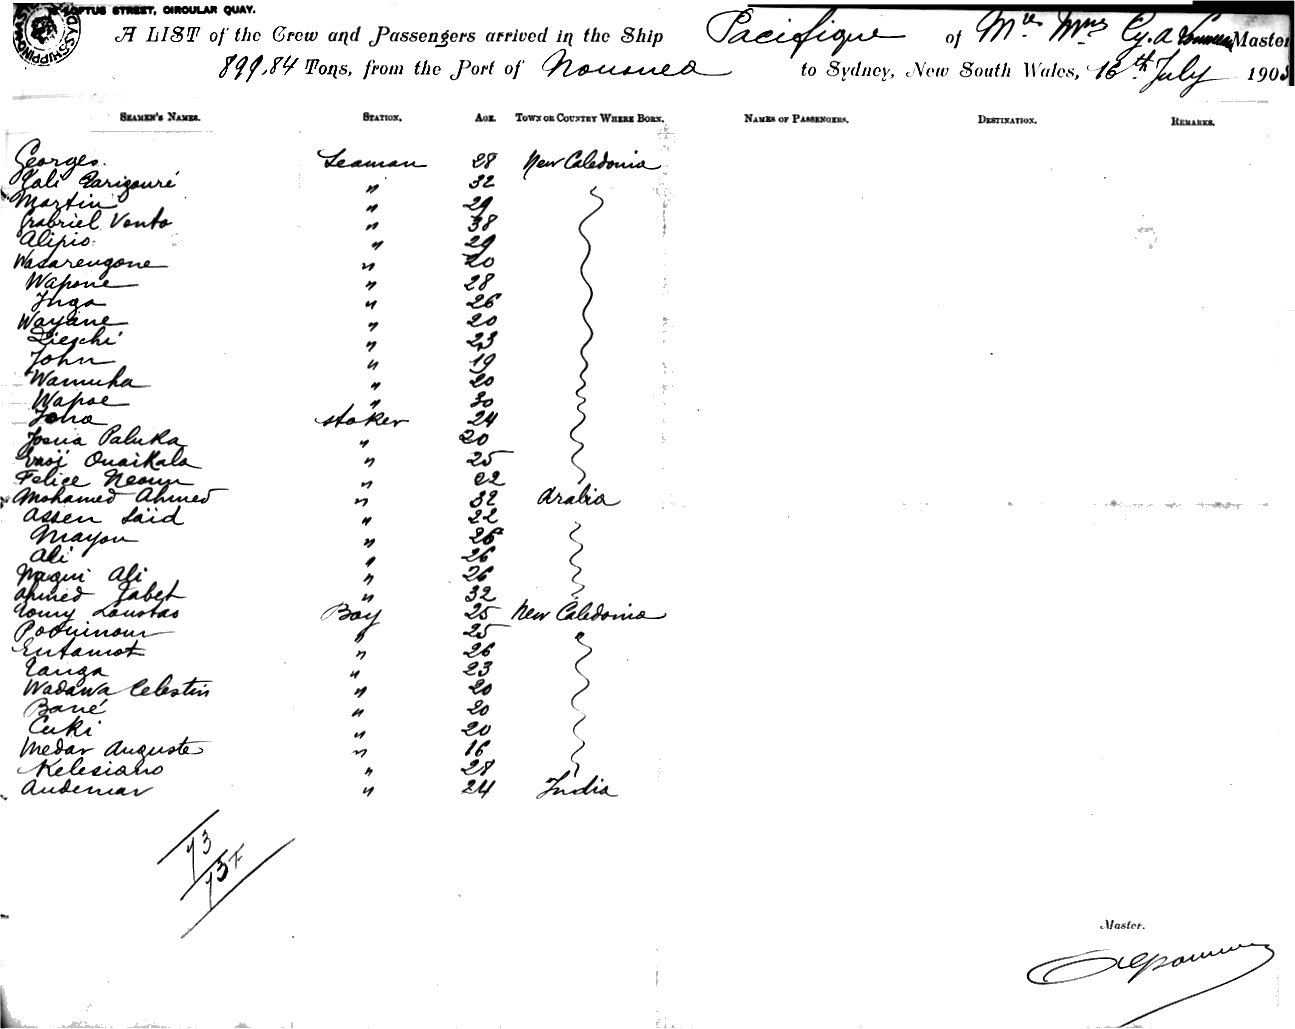 LOFTUS STREET, CIRCULAR QUAY.
A LIST of the Crew and Passengers arrived in the Ship Pacifique of Mies Mmes Cy. A Master
899,84 Tons, from the Port of Nouméa to Sydney, New South Wales, 16th July 190
SEAMEN'S NAMES. STATION. AGE. TOWN OR COUNTRY WHERE BORN. NAMES OF PASSENGERS. DESTINATION. REMARKS.
Georges. Seaman 28 New Caledonia
Kali Garigouré " 32
Martin " 29
Gabriel Vento " 38
Alipio " 29
Wasarengone " 20
Wapone " 28
Inga " 26
Wayane " 20
Zieschi " 23
John " 19
Wamuka " 20
Wapoe " 30
Jona Stoker 24
Josua Paluka " 20
Ouaikala " 25
Felice Neoun " 22
Mohamed Ahmed " 32 Arabia
Assen Saïd " 22
Mayou " 26
Ali " 26
Nagui Ali " 26
Ahmed Jabet " 32
Tomy Loustas Boy 25 New Caledonia
Poouinoun " 25
Entamot " 26
Tanga " 23
Wadawa Celestin " 20
Bané " 20
Cuki " 20
Medar Auguste " 16
Kelesiano " 28
Audemar " 24 India
73
Master.